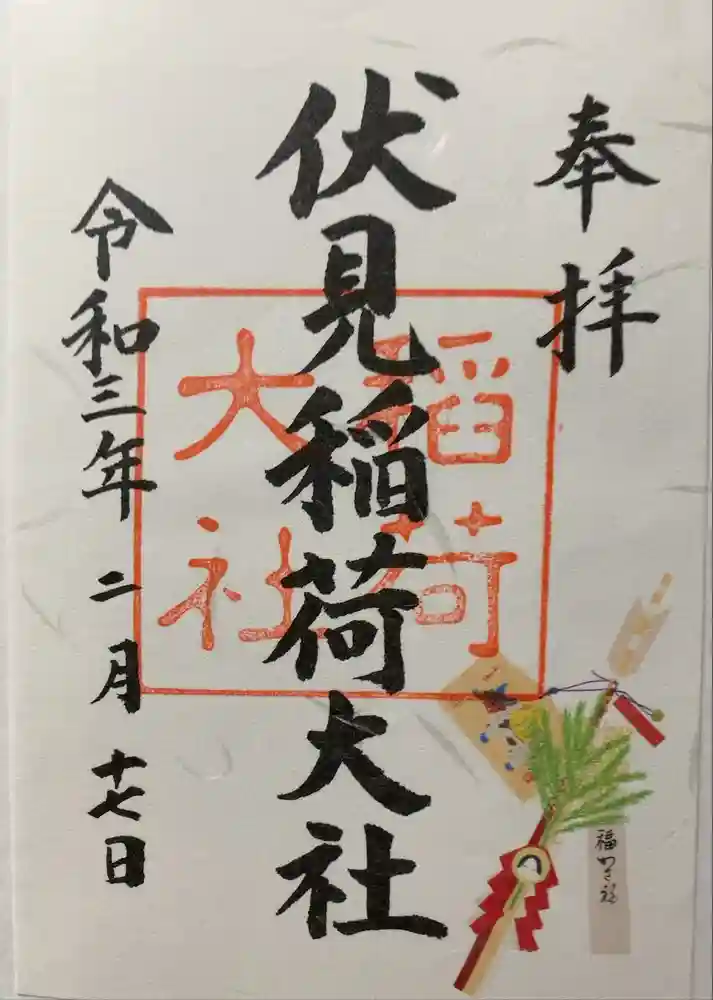 奉拝
伏見稲荷大社
稲荷
大社
令和三年二月十七日